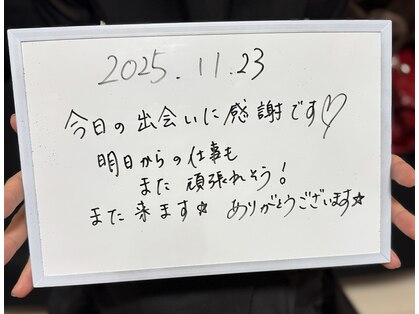 2025.11.23
今日の出会いに感謝です♡
明日からの仕事も
また頑張れそう!
また来ます☆ ありがとうございます☆